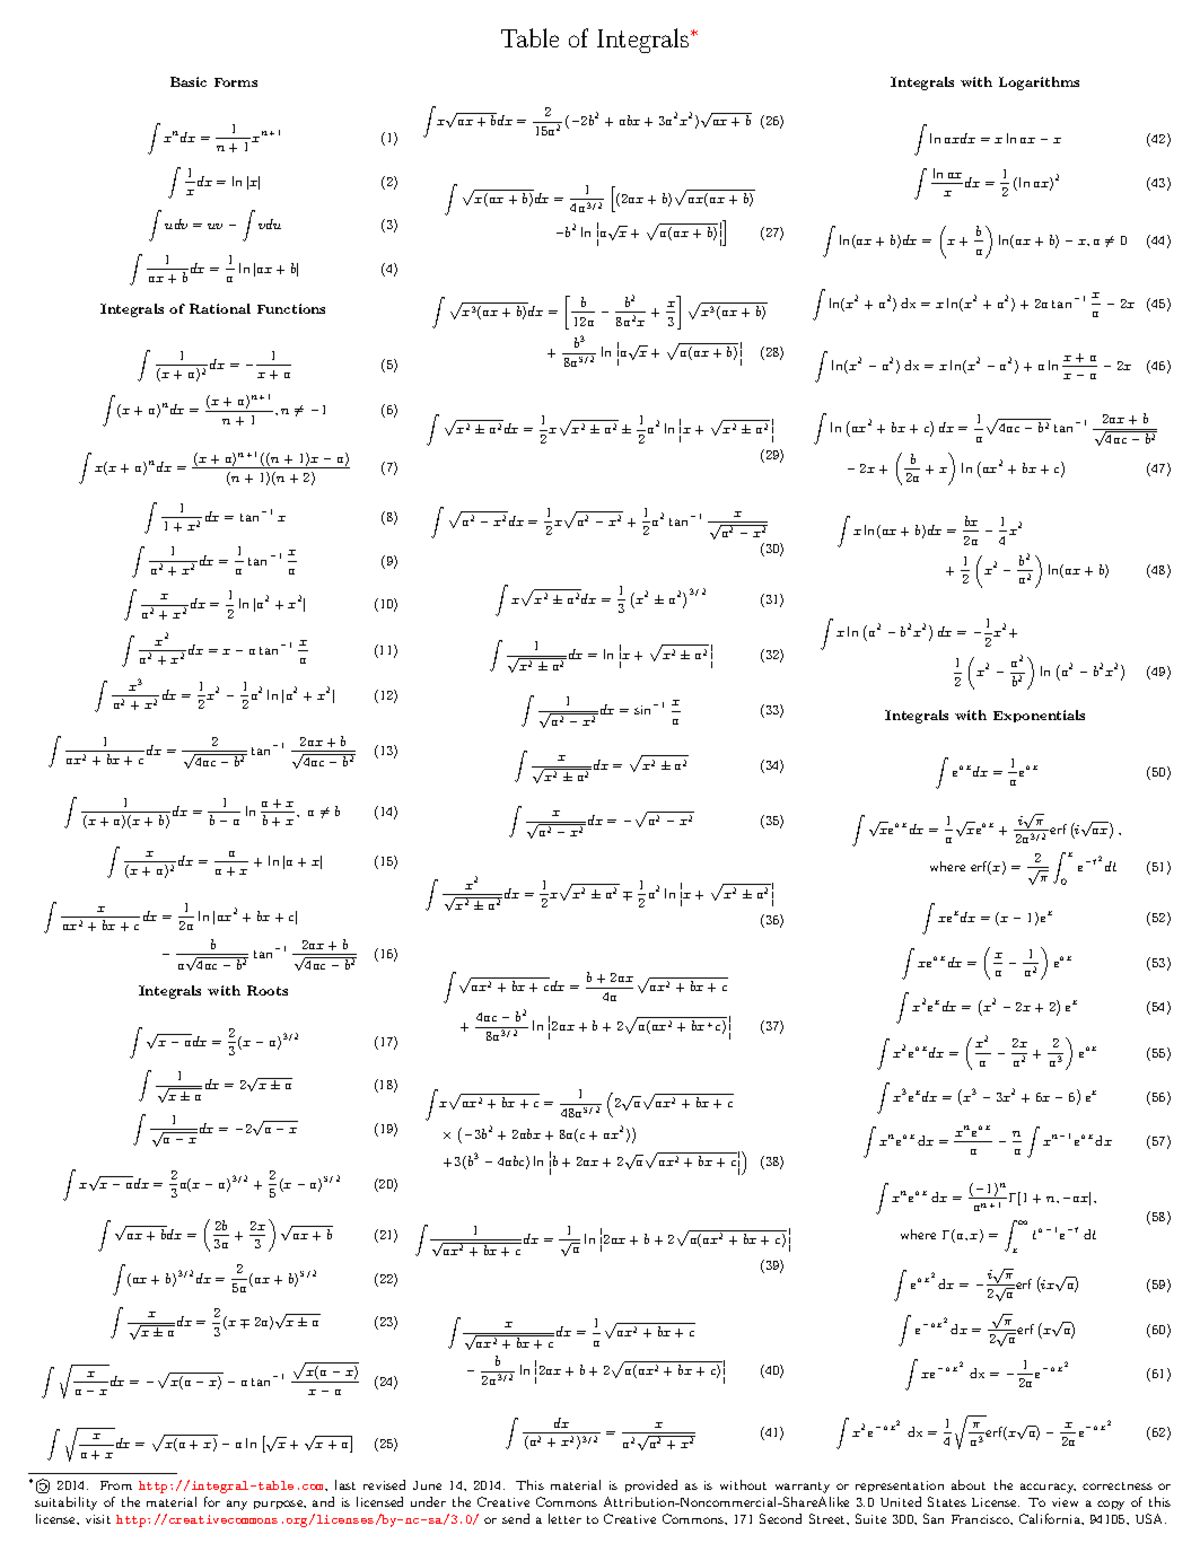 Table of Integrals*
Basic Forms
∫ xⁿdx = 1/(n + 1) xⁿ⁺¹ (1)
∫ 1/x dx = ln |x| (2)
∫ udv = uv − ∫ vdu (3)
∫ 1/(ax + b) dx = 1/a ln |ax + b| (4)
Integrals of Rational Functions
∫ 1/(x + a)² dx = − 1/(x + a) (5)
∫ (x + a)ⁿdx = (x + a)ⁿ⁺¹/(n + 1), n ≠ −1 (6)
∫ x(x + a)ⁿdx = (x + a)ⁿ⁺¹((n + 1)x − a)/((n + 1)(n + 2)) (7)
∫ 1/(1 + x²) dx = tan⁻¹ x (8)
∫ 1/(a² + x²) dx = 1/a tan⁻¹ x/a (9)
∫ x/(a² + x²) dx = 1/2 ln |a² + x²| (10)
∫ x²/(a² + x²) dx = x − a tan⁻¹ x/a (11)
∫ x³/(a² + x²) dx = 1/2 x² − 1/2 a² ln |a² + x²| (12)
∫ 1/(ax² + bx + c) dx = 2/√(4ac − b²) tan⁻¹ (2ax + b)/√(4ac − b²) (13)
∫ 1/((x + a)(x + b)) dx = 1/(b − a) ln (a + x)/(b + x), a ≠ b (14)
∫ x/(x + a)² dx = a/(a + x) + ln |a + x| (15)
∫ x/(ax² + bx + c) dx = 1/(2a) ln |ax² + bx + c|
− b/(a√(4ac − b²)) tan⁻¹ (2ax + b)/√(4ac − b²) (16)
Integrals with Roots
∫ √(x − a) dx = 2/3 (x − a)^(3/2) (17)
∫ 1/√(x ± a) dx = 2√(x ± a) (18)
∫ 1/√(a − x) dx = −2√(a − x) (19)
∫ x√(x − a) dx = 2/3 a(x − a)^(3/2) + 2/5 (x − a)^(5/2) (20)
∫ √(ax + b) dx = (2b/(3a) + 2x/3) √(ax + b) (21)
∫ (ax + b)^(3/2) dx = 2/(5a) (ax + b)^(5/2) (22)
∫ x/√(x ± a) dx = 2/3 (x ∓ 2a)√(x ± a) (23)
∫ √(x/(a − x)) dx = −√(x(a − x)) − a tan⁻¹ √(x(a − x))/(x − a) (24)
∫ √(x/(a + x)) dx = √(x(a + x)) − a ln [√x + √(x + a)] (25)
∫ x√(ax + b) dx = 2/(15a²) (−2b² + abx + 3a²x²)√(ax + b) (26)
∫ √(x(ax + b)) dx = 1/(4a^(3/2)) [(2ax + b)√(ax(ax + b))
−b² ln |a√x + √(a(ax + b))|] (27)
∫ √(x³(ax + b)) dx = [b/(12a) − b²/(8a²x) + x/3] √(x³(ax + b))
+ b³/(8a^(5/2)) ln |a√x + √(a(ax + b))| (28)
∫ √(x² ± a²) dx = 1/2 x√(x² ± a²) ± 1/2 a² ln |x + √(x² ± a²)|
(29)
∫ √(a² − x²) dx = 1/2 x√(a² − x²) + 1/2 a² tan⁻¹ x/√(a² − x²)
(30)
∫ x√(x² ± a²) dx = 1/3 (x² ± a²)^(3/2) (31)
∫ 1/√(x² ± a²) dx = ln |x + √(x² ± a²)| (32)
∫ 1/√(a² − x²) dx = sin⁻¹ x/a (33)
∫ x/√(x² ± a²) dx = √(x² ± a²) (34)
∫ x/√(a² − x²) dx = −√(a² − x²) (35)
∫ x²/√(x² ± a²) dx = 1/2 x√(x² ± a²) ∓ 1/2 a² ln |x + √(x² ± a²)|
(36)
∫ √(ax² + bx + c) dx = (b + 2ax)/(4a) √(ax² + bx + c)
+ (4ac − b²)/(8a^(3/2)) ln |2ax + b + 2√(a(ax² + bx⁺c))| (37)
∫ x√(ax² + bx + c) = 1/(48a^(5/2)) (2√a√(ax² + bx + c)
× (−3b² + 2abx + 8a(c + ax²))
+3(b³ − 4abc) ln |b + 2ax + 2√a√(ax² + bx + c)|) (38)
∫ 1/√(ax² + bx + c) dx = 1/√a ln |2ax + b + 2√(a(ax² + bx + c))|
(39)
∫ x/√(ax² + bx + c) dx = 1/a √(ax² + bx + c)
− b/(2a^(3/2)) ln |2ax + b + 2√(a(ax² + bx + c))| (40)
∫ dx/(a² + x²)^(3/2) = x/(a²√(a² + x²)) (41)
Integrals with Logarithms
∫ ln axdx = x ln ax − x (42)
∫ (ln ax)/x dx = 1/2 (ln ax)² (43)
∫ ln(ax + b)dx = (x + b/a) ln(ax + b) − x, a ≠ 0 (44)
∫ ln(x² + a²) dx = x ln(x² + a²) + 2a tan⁻¹ x/a − 2x (45)
∫ ln(x² − a²) dx = x ln(x² − a²) + a ln (x + a)/(x − a) − 2x (46)
∫ ln (ax² + bx + c) dx = 1/a √(4ac − b²) tan⁻¹ (2ax + b)/√(4ac − b²)
− 2x + (b/(2a) + x) ln (ax² + bx + c) (47)
∫ x ln(ax + b)dx = bx/(2a) − 1/4 x²
+ 1/2 (x² − b²/a²) ln(ax + b) (48)
∫ x ln (a² − b²x²) dx = −1/2 x²+
1/2 (x² − a²/b²) ln (a² − b²x²) (49)
Integrals with Exponentials
∫ e^(ax) dx = 1/a e^(ax) (50)
∫ √x e^(ax) dx = 1/a √x e^(ax) + i√π/(2a^(3/2)) erf (i√(ax)),
where erf(x) = 2/√π ∫₀ˣ e^(−t²) dt (51)
∫ xeˣdx = (x − 1)eˣ (52)
∫ xe^(ax) dx = (x/a − 1/a²) e^(ax) (53)
∫ x²eˣdx = (x² − 2x + 2) eˣ (54)
∫ x²e^(ax) dx = (x²/a − 2x/a² + 2/a³) e^(ax) (55)
∫ x³eˣdx = (x³ − 3x² + 6x − 6) eˣ (56)
∫ xⁿe^(ax) dx = xⁿe^(ax)/a − n/a ∫ xⁿ⁻¹e^(ax) dx (57)
∫ xⁿe^(ax) dx = (−1)ⁿ/aⁿ⁺¹ Γ[1 + n, −ax],
where Γ(a, x) = ∫ₓ^∞ t^(a−1)e^(−t) dt (58)
∫ e^(ax²) dx = −i√π/(2√a) erf (ix√a) (59)
∫ e^(−ax²) dx = √π/(2√a) erf (x√a) (60)
∫ xe^(−ax²) dx = −1/(2a) e^(−ax²) (61)
∫ x²e^(−ax²) dx = 1/4 √(π/a³) erf(x√a) − x/(2a) e^(−ax²) (62)
*© 2014. From http://integral-table.com, last revised June 14, 2014. This material is provided as is without warranty or representation about the accuracy, correctness or
suitability of the material for any purpose, and is licensed under the Creative Commons Attribution-Noncommercial-ShareAlike 3.0 United States License. To view a copy of this
license, visit http://creativecommons.org/licenses/by-nc-sa/3.0/ or send a letter to Creative Commons, 171 Second Street, Suite 300, San Francisco, California, 94105, USA.